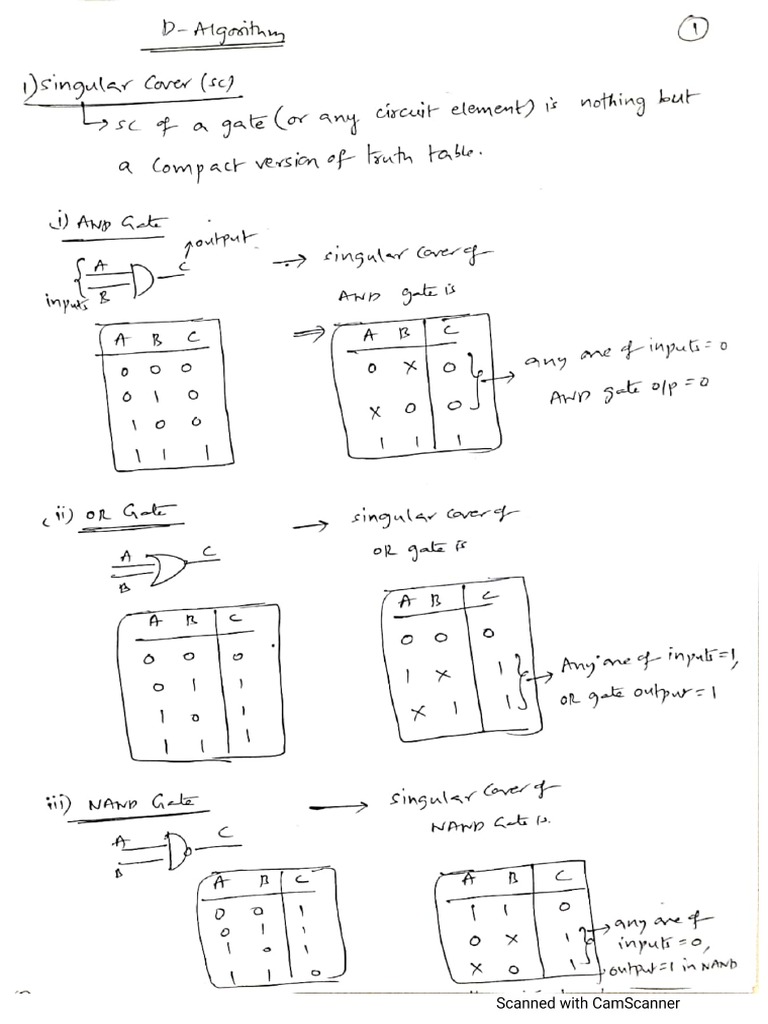 D-Algorithm
1
1) Singular Cover (SC)
↳ SC of a gate (or any circuit element) is nothing but
a compact version of truth table.
i) AND Gate
output
A
B
C
inputs
→ singular cover of
AND gate is
A B C
0 0 0
0 1 0
1 0 0
1 1 1
⇒
A B C
0 X 0
X 0 0
1 1 1
→ any one of inputs = 0
AND gate o/p = 0
(ii) OR Gate
→ singular cover of
OR gate is
A
B
C
A B C
0 0 0
0 1 1
1 0 1
1 1 1
A B C
0 0 0
1 X 1
X 1 1
→ Any one of inputs = 1,
OR gate output = 1
iii) NAND Gate
→ singular cover of
NAND Gate is.
A
B
C
A B C
0 0 1
0 1 1
1 0 1
1 1 0
A B C
1 1 0
0 X 1
X 0 1
→ any one of
inputs = 0,
output = 1 in NAND
Scanned with CamScanner